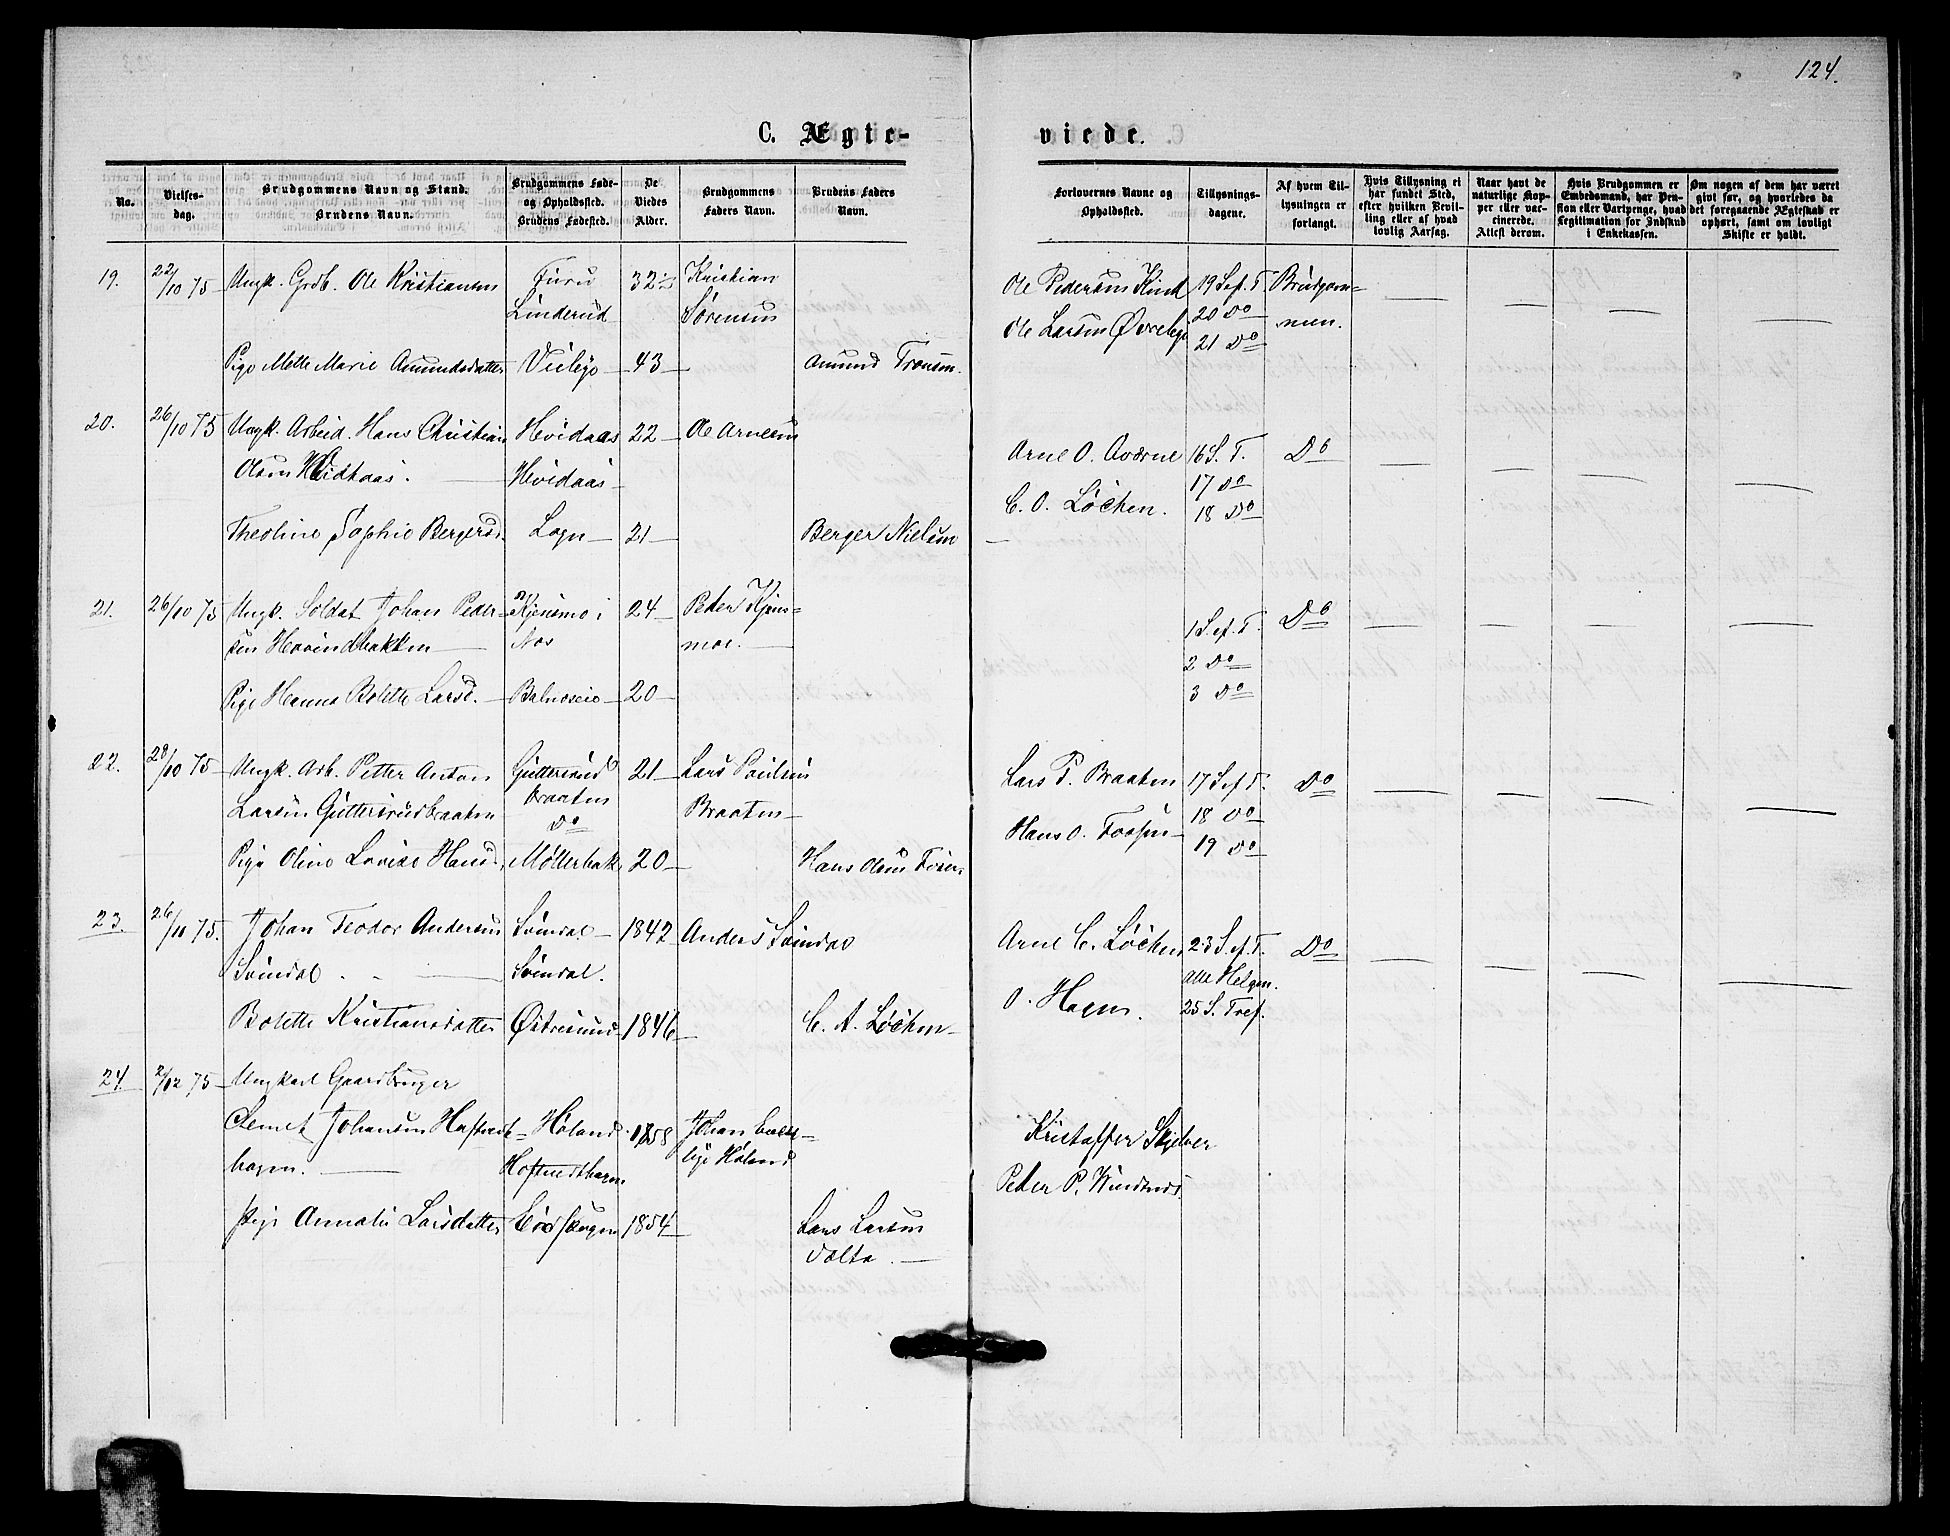 124.
C. Ægte-
viede.
No.
Vielses-
dag.
Brudgommens Navn og Stand.
Brudens Navn.
Brudgommens Føde-
og Opholdssted.
Brudens Fødested.
De
Viedes
Alder.
Brudgommens
Faders Navn.
Brudens Faders
Navn.
Forlovernes Navne og
Opholdssted.
Tillysnings-
dagene.
Af hvem Til-
lysningen er
forlangt.
Hvis Tillysning ei
har fundet Sted,
efter hvilken Bevil-
ling eller af hvad
lovlig Aarsag.
Naar havt de
naturlige Kop-
per eller vac-
cinerede.
Attest derom.
Hvis Brudgommen er
Embedsmand, har Pen-
sion eller Vartpenge, hvad
Legitimation for Indskud
i Enkekassen.
Om nogen af dem har været
givt før, og hvorledes da
det foregaaende Ægteskab er
ophørt, samt om lovligt
Skifte er holdt.
19. 22/10 75 Ungk. Grdb. Ole Kristiansen Furu 32 Kristian Ole Pedersen Kind 19 Sef. T. Brudgom-
Linderud Sørensen Ole Larsen 20 Do men.
21 Do
Pige Mette Marie Amundsdatter 43 Amund
20. 26/10 75 Ungk. Arbeid. Hans Christian Hvidaas 22 Ole Arnesen Arne O. 16 S. T. Do
Olsen Hvidaas 17 Do
C. O. Løchen. 18 Do
Theoline Sophie Bergersd. Løgn 21 Berger Nielsen
21. 26/10 75 Ungk. Soldat Johan Peder- Kjensmo i 24 Peder Kjens- 1 S. ef. T. Do
sen Hovindbakken Nes moe. 2 Do
Pige Hanna Bolette Larsd. 20 3 Do
22. 28/10 75 Ungk. Arb. Petter Anton Guttersrud 21 Lars Paulsen Lars P. Braaten 17 S ef T. Do
Larsen Guttersrudbraaten braaten Braaten 18 Do
Do Hans O. 19 Do
Pige Oline Lovise Hansd. Møllerbak. 20 Hans Olsen
23. 26/11 75. Johan Teodor Andersen Svindal 1842 Anders Svindal Arne C. Løchen 23 S. ef. T. Do
Svindal Svindal. Alle Helgen.
O. Hagen. 25 S. Tref.
Bolette Kristiansdatter Østresund 1846 C. A. Løchen
24. 2/12 75 Ungkarl Gaardbruger
Clemet Johansen Høland 1858 Johan Kristoffer Skjelver
hagen. Høland Peder P.
Pige Annalie Larsdatter 1854 Lars Larsen
Dølta.